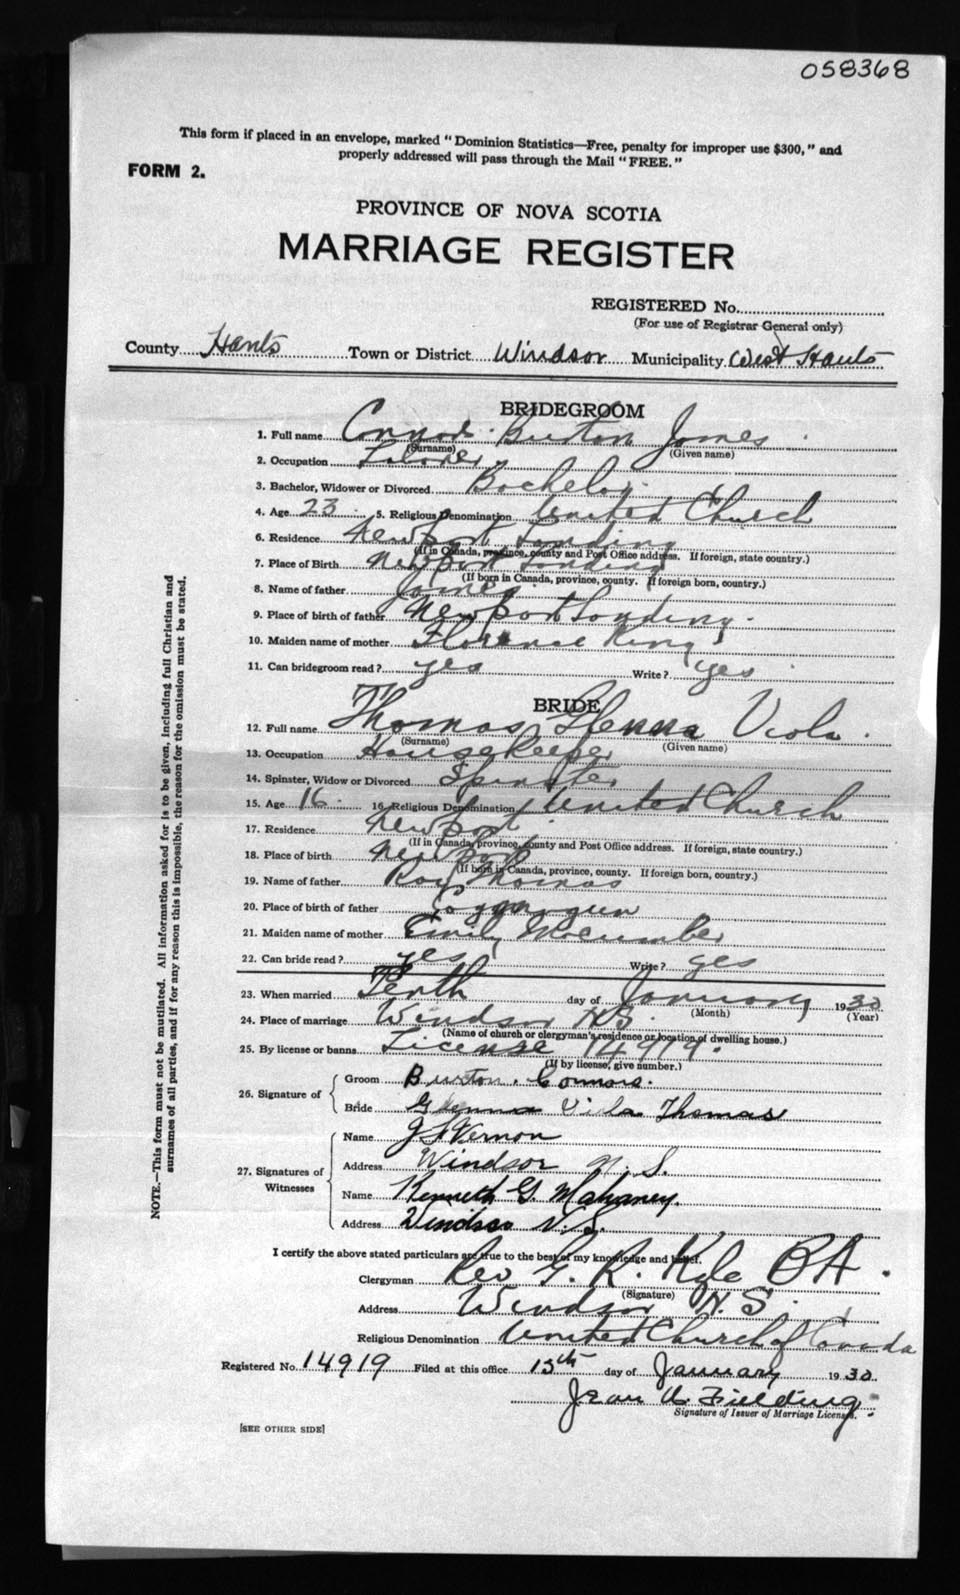 058368
This form if placed in an envelope, marked "Dominion Statistics—Free, penalty for improper use $300," and
properly addressed will pass through the Mail "FREE."
FORM 2.
PROVINCE OF NOVA SCOTIA
MARRIAGE REGISTER
REGISTERED No.
(For use of Registrar General only)
County Hants Town or District Windsor Municipality West Hants
BRIDEGROOM
1. Full name Connors Burton James
(Surname) (Given name)
2. Occupation Laborer
3. Bachelor, Widower or Divorced Bachelor
4. Age 23 5. Religious Denomination United Church
6. Residence Newport Landing
(If in Canada, province, county and Post Office address. If foreign, state country.)
7. Place of Birth Newport Landing
(If born in Canada, province, county. If foreign born, country.)
8. Name of father James
9. Place of birth of father Newport Landing
10. Maiden name of mother Florence King
11. Can bridegroom read? yes Write? yes
BRIDE
12. Full name Thomas Glenna Viola
(Surname) (Given name)
13. Occupation Housekeeper
14. Spinster, Widow or Divorced Spinster
15. Age 16 16. Religious Denomination United Church
17. Residence Newport
(If in Canada, province, county and Post Office address. If foreign, state country.)
18. Place of birth Newport
(If born in Canada, province, county. If foreign born, country.)
19. Name of father Roy Thomas
20. Place of birth of father
21. Maiden name of mother Emily Macumber
22. Can bride read? yes Write? yes
23. When married Tenth day of January 1930
(Month) (Year)
24. Place of marriage Windsor N.S.
(Name of church or clergyman's residence or location of dwelling house.)
25. By license or banns License 14919.
(If by license, give number.)
26. Signature of
Groom Burton. Connors.
Bride Glenna Viola Thomas
27. Signatures of Witnesses
Name J S Vernon
Address Windsor N.S.
Name Kenneth G. Mahaney.
Address Windsor N.S.
I certify the above stated particulars are true to the best of my knowledge and belief.
Clergyman Rev G. R. Kyle BA.
(Signature)
Address Windsor N.S.
Religious Denomination United Church of Canada
Registered No. 14919 Filed at this office 15th day of January 1930
Jean U. Fielding
Signature of Issuer of Marriage Licenses.
[SEE OTHER SIDE]
NOTE.—This form must not be mutilated. All information asked for is to be given, including full Christian and
surnames of all parties, and if for any reason this is impossible, the reason for the omission must be stated.